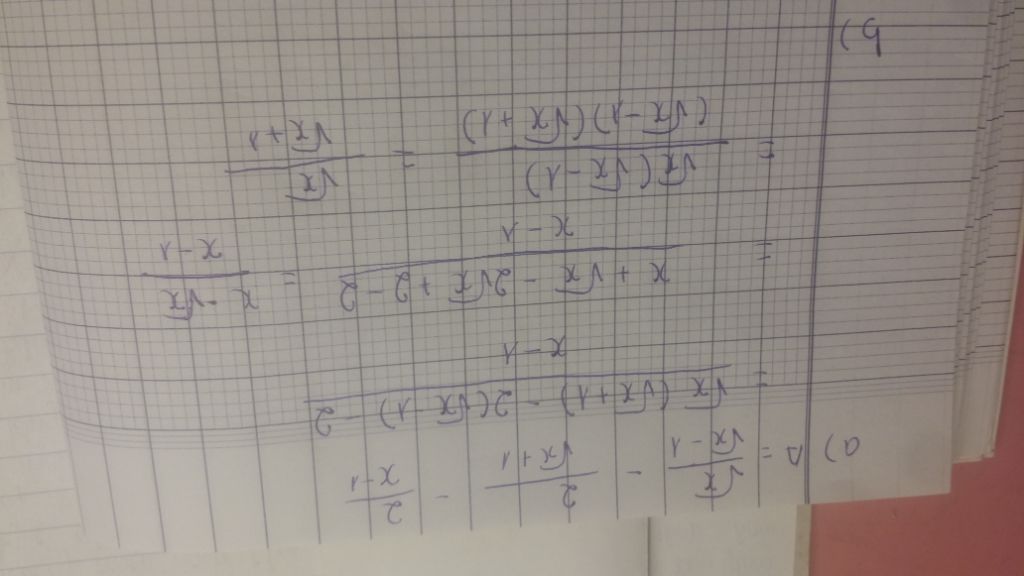 a) A = √x / (√x - 1) - 2 / (√x + 1) - 2 / (x - 1)
= (√x (√x + 1) - 2(√x - 1) - 2) / (x - 1)
= (x + √x - 2√x + 2 - 2) / (x - 1) = (x - √x) / (x - 1)
= (√x (√x - 1)) / ((√x - 1)(√x + 1)) = √x / (√x + 1)
b)